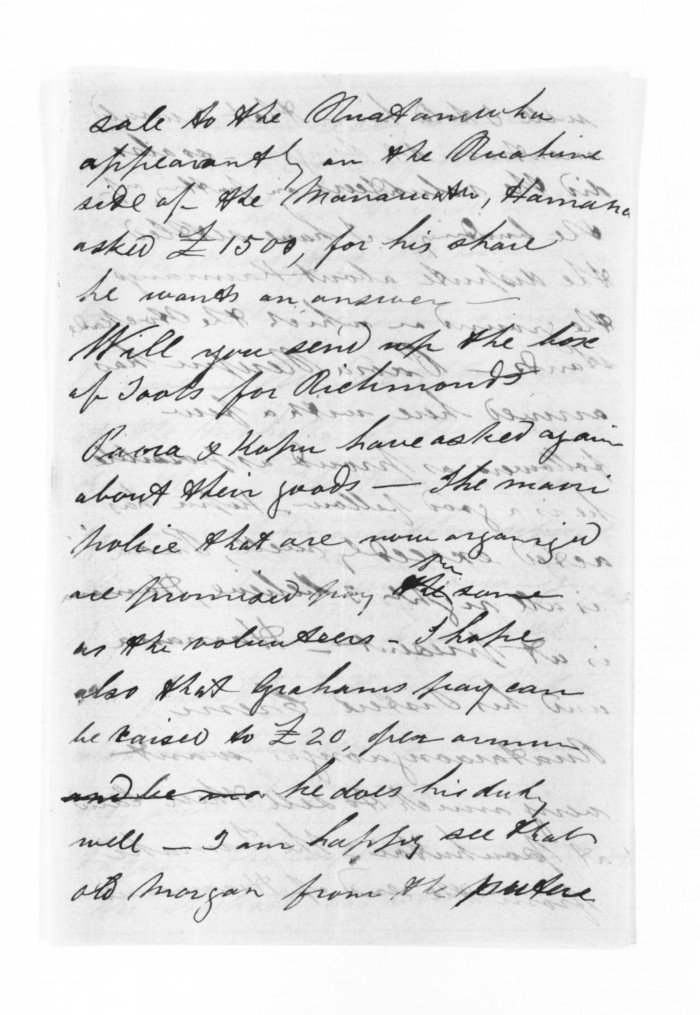 sale to the Ruataniwha
appearantly on the Ruahine
side of the Manawatu, Hamana
asked £1500, for his share
he wants an answer —
Will you send up the box
of Tools for Richmonds
Paora & Kopu have asked again
about their goods — The maori
police that are now organized
are promised pay the same
as the volunteers — I hope
also that Grahams pay can
be raised to £20, per annum
and he he does his duty
well — I am happy see that
old Morgan from the